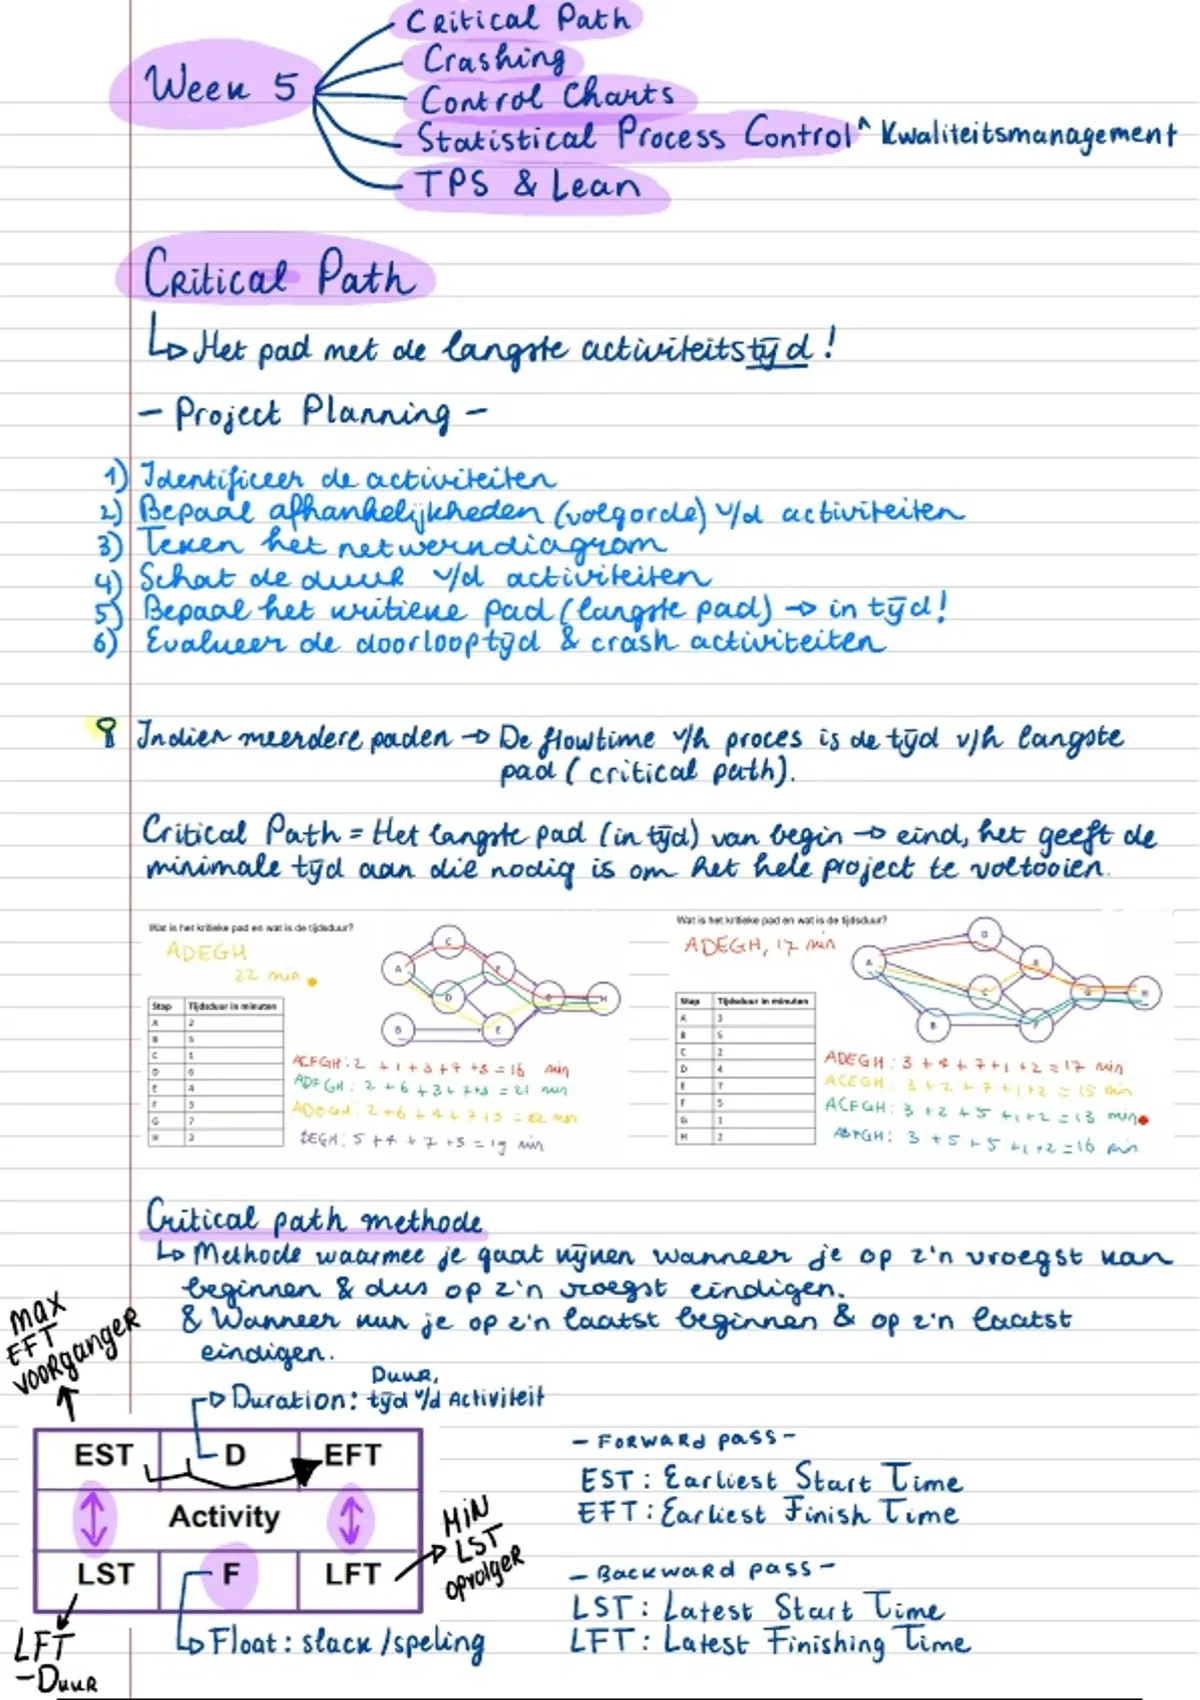 Week 5
Critical Path
Crashing
Control Charts
Statistical Process Control ^ Kwaliteitsmanagement
TPS & Lean
Critical Path
↳ Het pad met de langste activiteitstijd!
- Project Planning -
1) Identificeer de activiteiten
2) Bepaal afhankelijkheden (volgorde) v/d activiteiten
3) Teken het netwerkdiagram
4) Schat de duur v/d activiteiten
5) Bepaal het kritieke pad (langste pad) → in tijd!
6) Evalueer de doorlooptijd & crash activiteiten
Indien meerdere paden → De flowtime v/h proces is de tijd v/h langste
pad (critical path).
Critical Path = Het langste pad (in tijd) van begin → eind, het geeft de
minimale tijd aan die nodig is om het hele project te voltooien.
Wat is het kritieke pad en wat is de tijdsduur?
ADEGH
22 min
Stap Tijdsduur in minuten
A 2
B 5
C 1
D 6
E 4
F 3
G 7
H 3
A
C
F
D
B
E
H
ACFGH: 2 + 1 + 3 + 7 + 3 = 16 min
ADFGH: 2 + 6 + 3 + 7 + 3 = 21 min
ADEGH: 2 + 6 + 4 + 7 + 3 = 22 min
BEGH: 5 + 4 + 7 + 3 = 19 min
Wat is het kritieke pad en wat is de tijdsduur?
ADEGH, 17 min
Stap Tijdsduur in minuten
A 3
B 5
C 2
D 4
E 7
F 5
G 1
H 2
A
D
E
C
G
H
B
F
ADEGH: 3 + 4 + 7 + 1 + 2 = 17 min
ACEGH: 3 + 2 + 7 + 1 + 2 = 15 min
ACFGH: 3 + 2 + 5 + 1 + 2 = 13 min
ABFGH: 3 + 5 + 5 + 1 + 2 = 16 min
Critical path methode
↳ Methode waarmee je gaat kijken wanneer je op z'n vroegst kan
beginnen & dus op z'n vroegst eindigen.
& Wanneer kun je op z'n laatst beginnen & op z'n laatst
eindigen.
max
EFT
voorganger
Duration: Duur,
tijd v/d Activiteit
EST D EFT
Activity
LST F LFT
MIN
LST
opvolger
LFT
- Duur
Float: slack/speling
- Forward pass -
EST: Earliest Start Time
EFT: Earliest Finish Time
- Backward pass -
LST: Latest Start Time
LFT: Latest Finishing Time